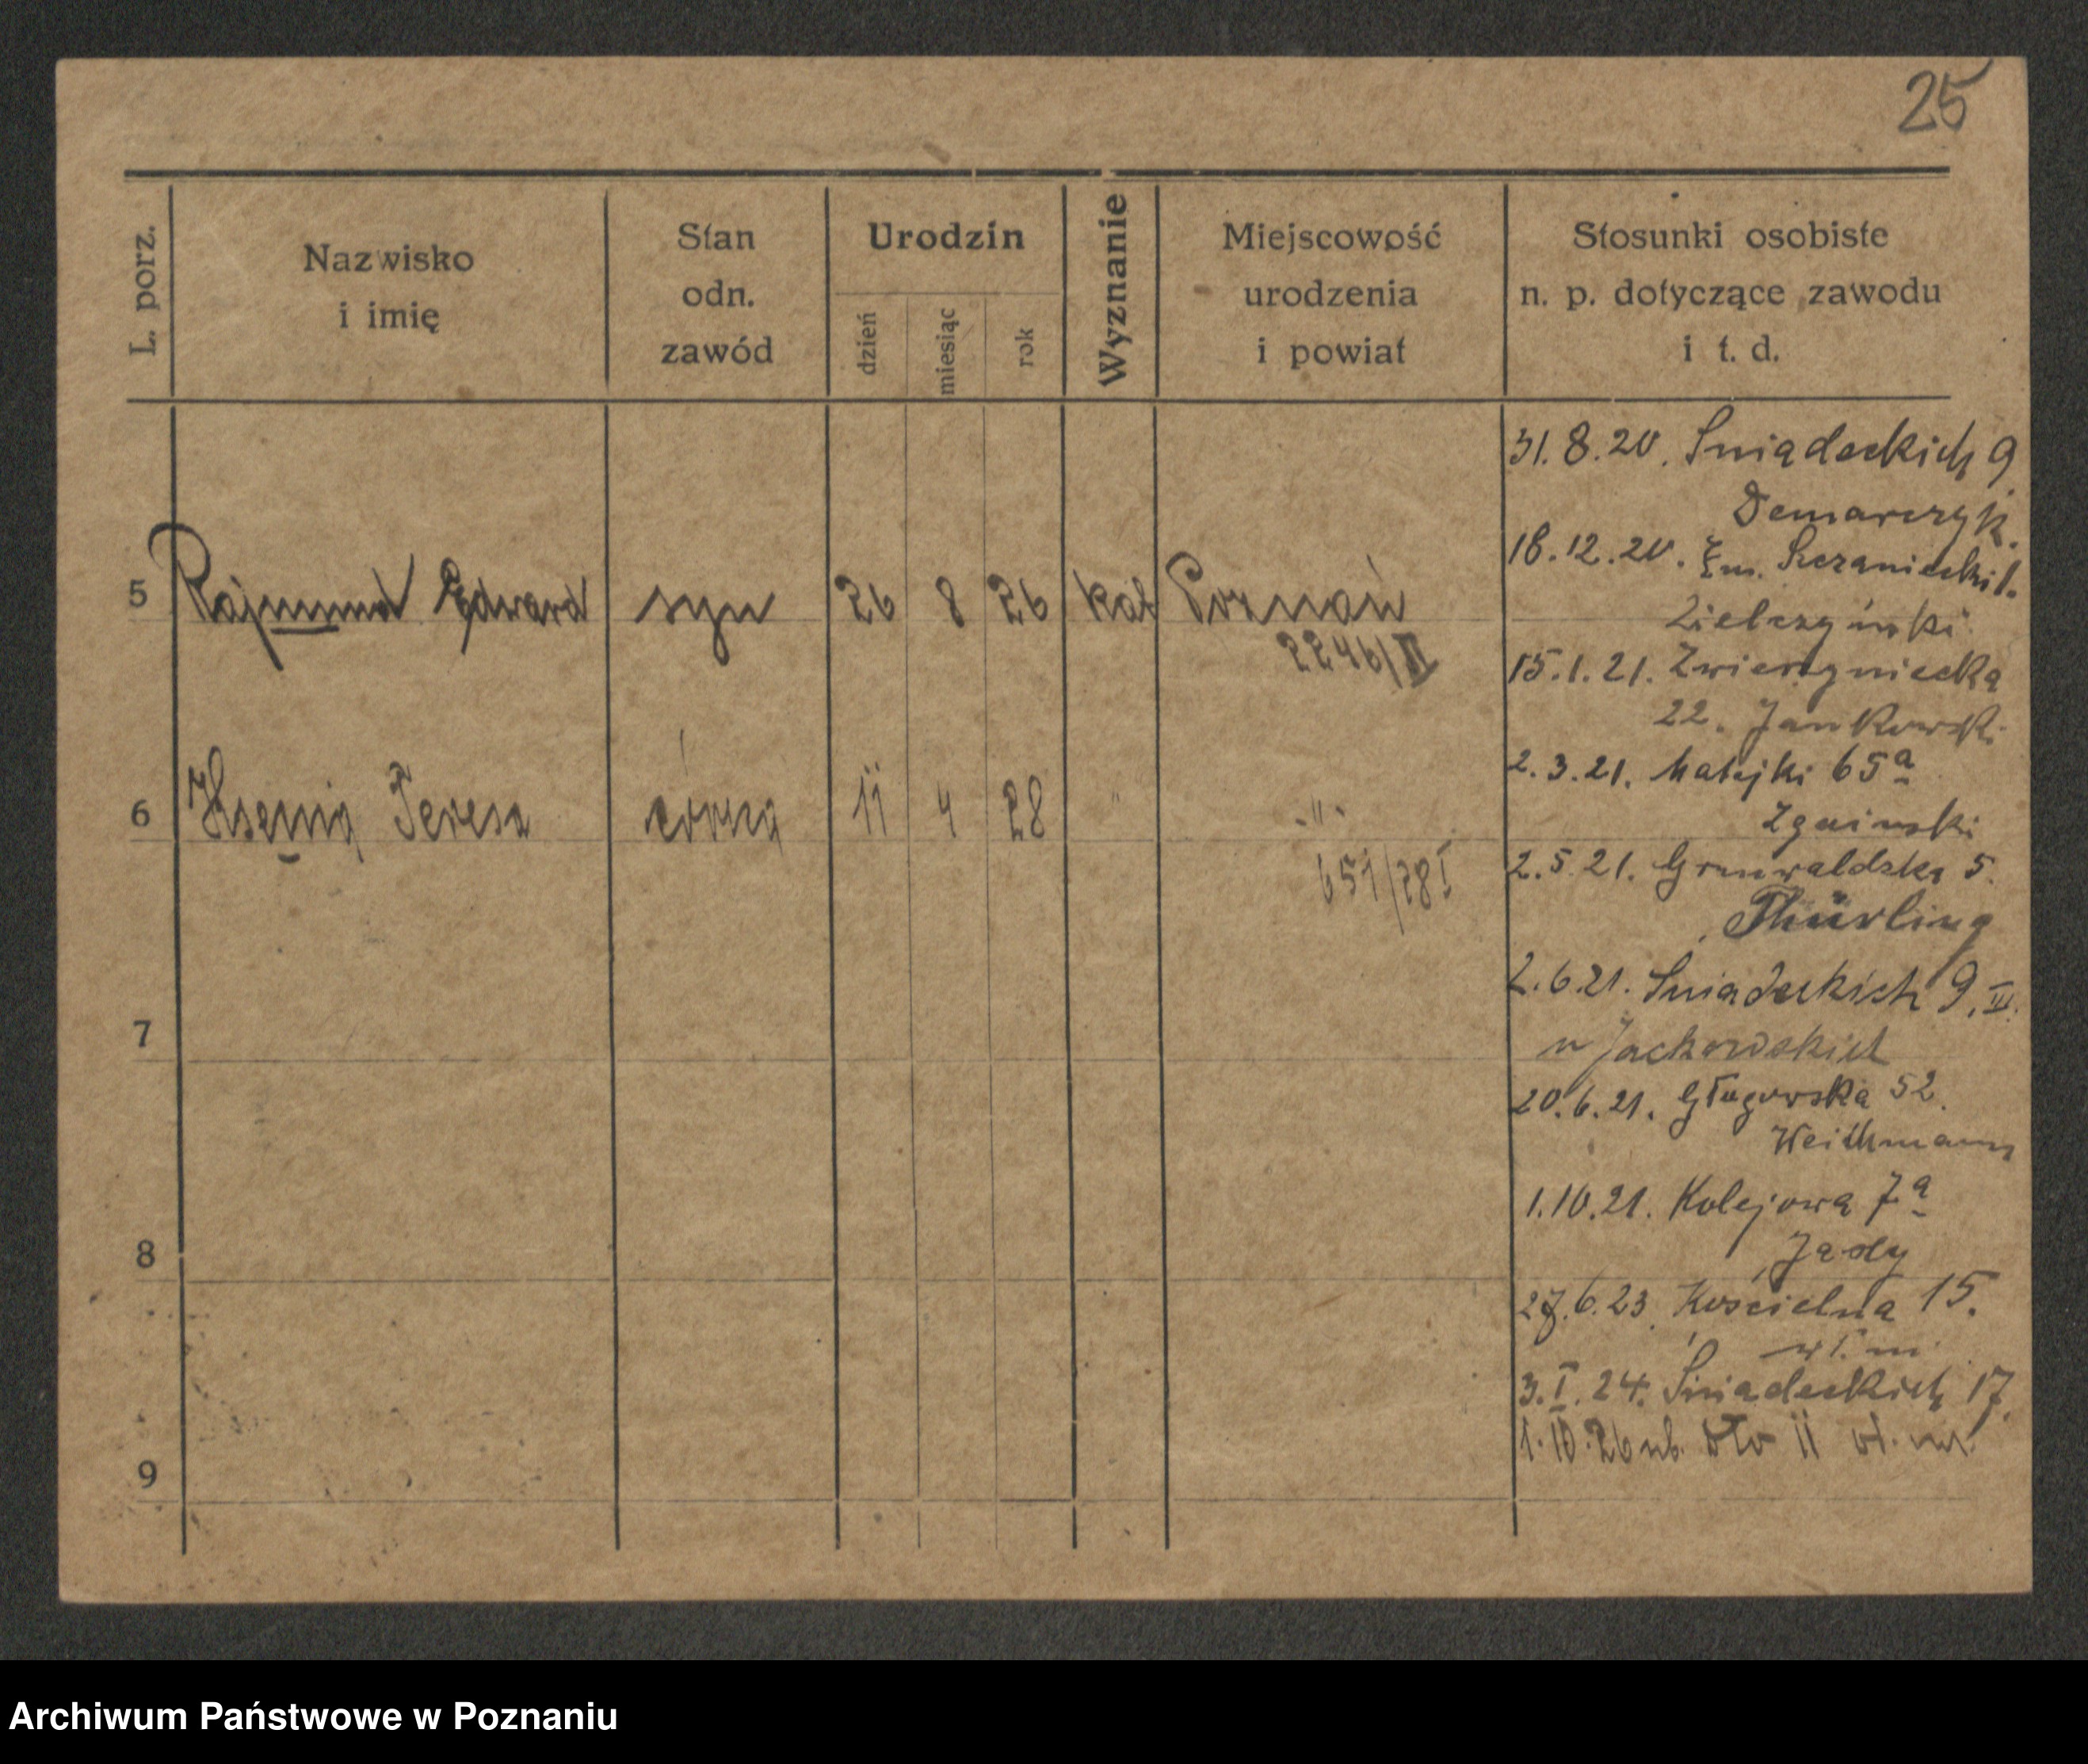 25
L. porz.
Nazwisko
i imię
Stan
odn.
zawód
Urodzin
dzień
miesiąc
rok
Wyznanie
Miejscowość
urodzenia
i powiat
Stosunki osobiste
n. p. dotyczące zawodu
i t. d.
5 Rajmund Edward syn 26 8 26 kat Poznań
2246/II
6 Ksenia Teresa córka 11 4 28 " -"-
651/28 I
7
8
9
31.8.20. Śniadeckich 9
Demarczyk.
18.12.20. Em. Sczanieckil.
Zielczyński
15.1.21. Zwierzyniecka
22. Jankowski
2.3.21. Matejki 65a
Zgaiński
2.5.21. Grunwaldzka 5.
Thürling
2.6.21. Śniadeckich 9, III.
u Jackowskich
20.6.21. Głogowska 52.
Weithmann
1.10.21. Kolejowa 7a
Jady
27.6.23. Kościelna 15.
wł. m.
3.I.24. Śniadeckich 17.
1.10.26 dto II
Archiwum Państwowe w Poznaniu